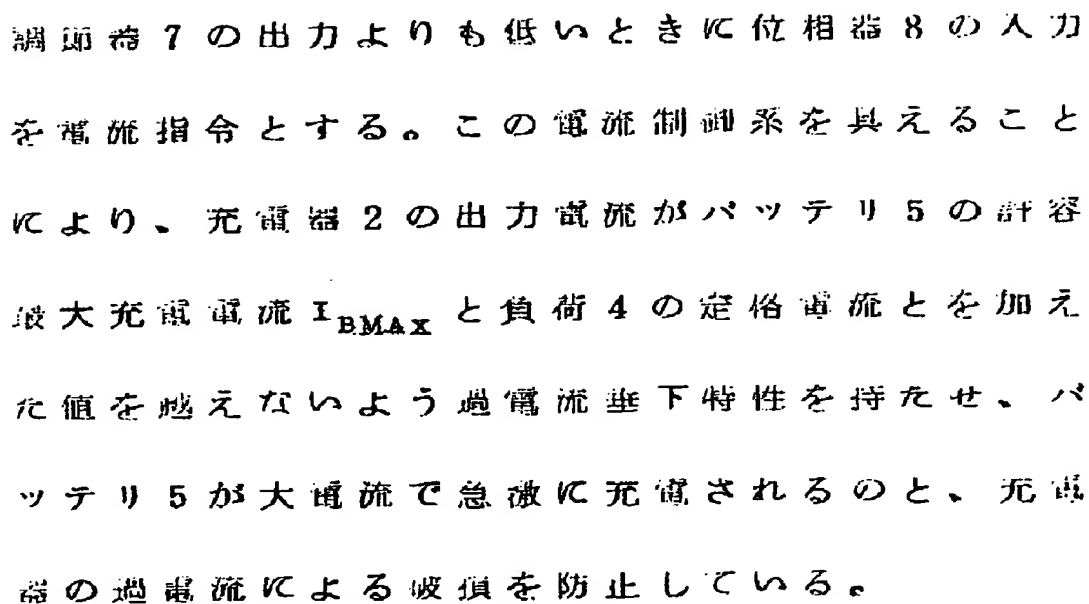 調節器7の出力よりも低いときに位相器8の入力
を電流指令とする。この電流制御系を具えること
により、充電器2の出力電流がバッテリ5の許容
最大充電電流I_BMAXと負荷4の定格電流とを加え
た値を越えないよう過電流垂下特性を持たせ、バ
ッテリ5が大電流で急激に充電されるのと、充電
器の過電流による破損を防止している。